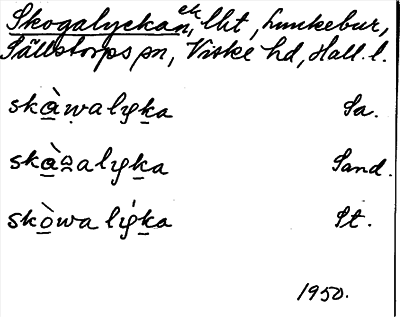 Skogalyckan, ek lht, Lunkebur,
Sällstorps sn, Viske hd, Hall. l.
skàwalyka Sa.
skàalyka Sand.
skòwalýka St.
1950.